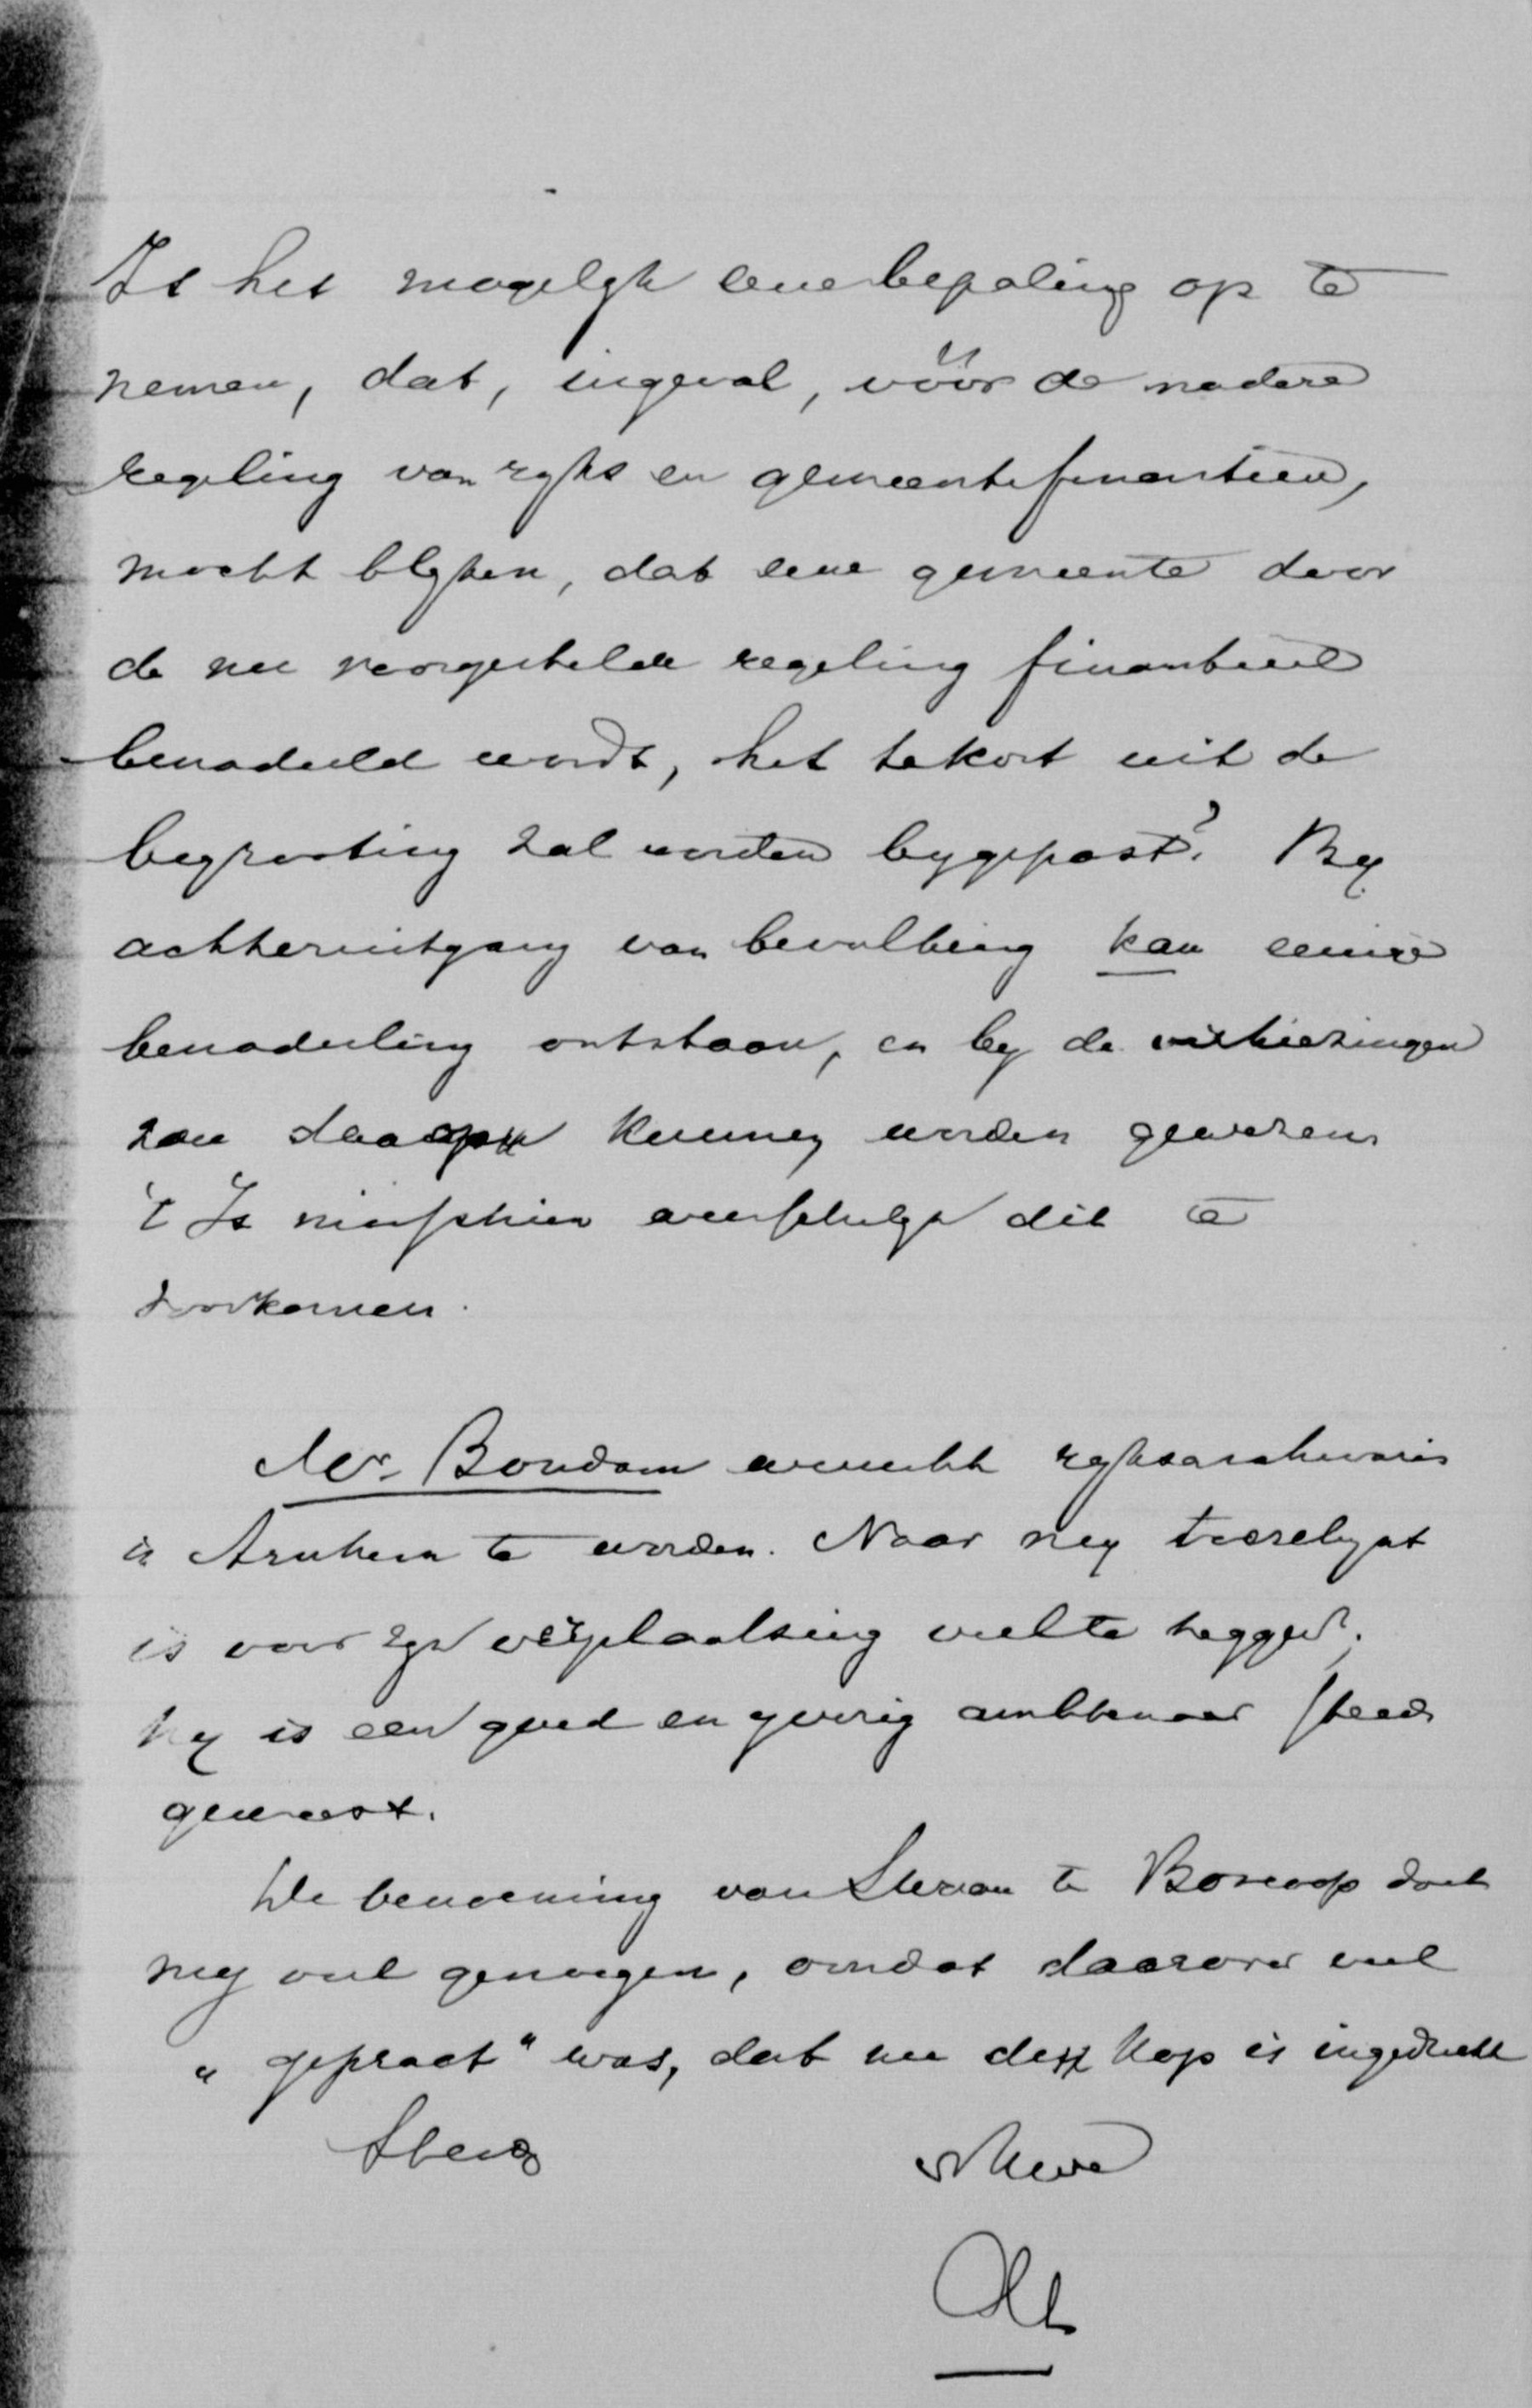 Is het mogelyk eene bepaling op te
nemen, dat, ingeval, vóór de nadere
regeling van ryks en gemeentefinantien,
mocht blyken, dat eene gemeente door
de nu voorgestelde regeling finantieel
benadeeld wordt, het tekort uit de
begrooting zal worden bygepast? By
achteruitgang van bevolking kan eenige
benadeeling ontstaan, en by de verkiezingen
zou daarop kunnen worden gewezen
't Is misschien overschielyk dit te
voorkomen.
Mr. Bondam wenscht ryksarchivaris
in Arnhem te worden. Naar my toeschynt
is voor zyn verplaatsing veel te zeggen;
hy is een goed en yverig ambtenaar steeds
geweest.
De benoeming van to Boscoop doet
my veel genoegen, omdat daarover veel
"gepraat" was, dat nu den kop is ingedrukt
Steeds